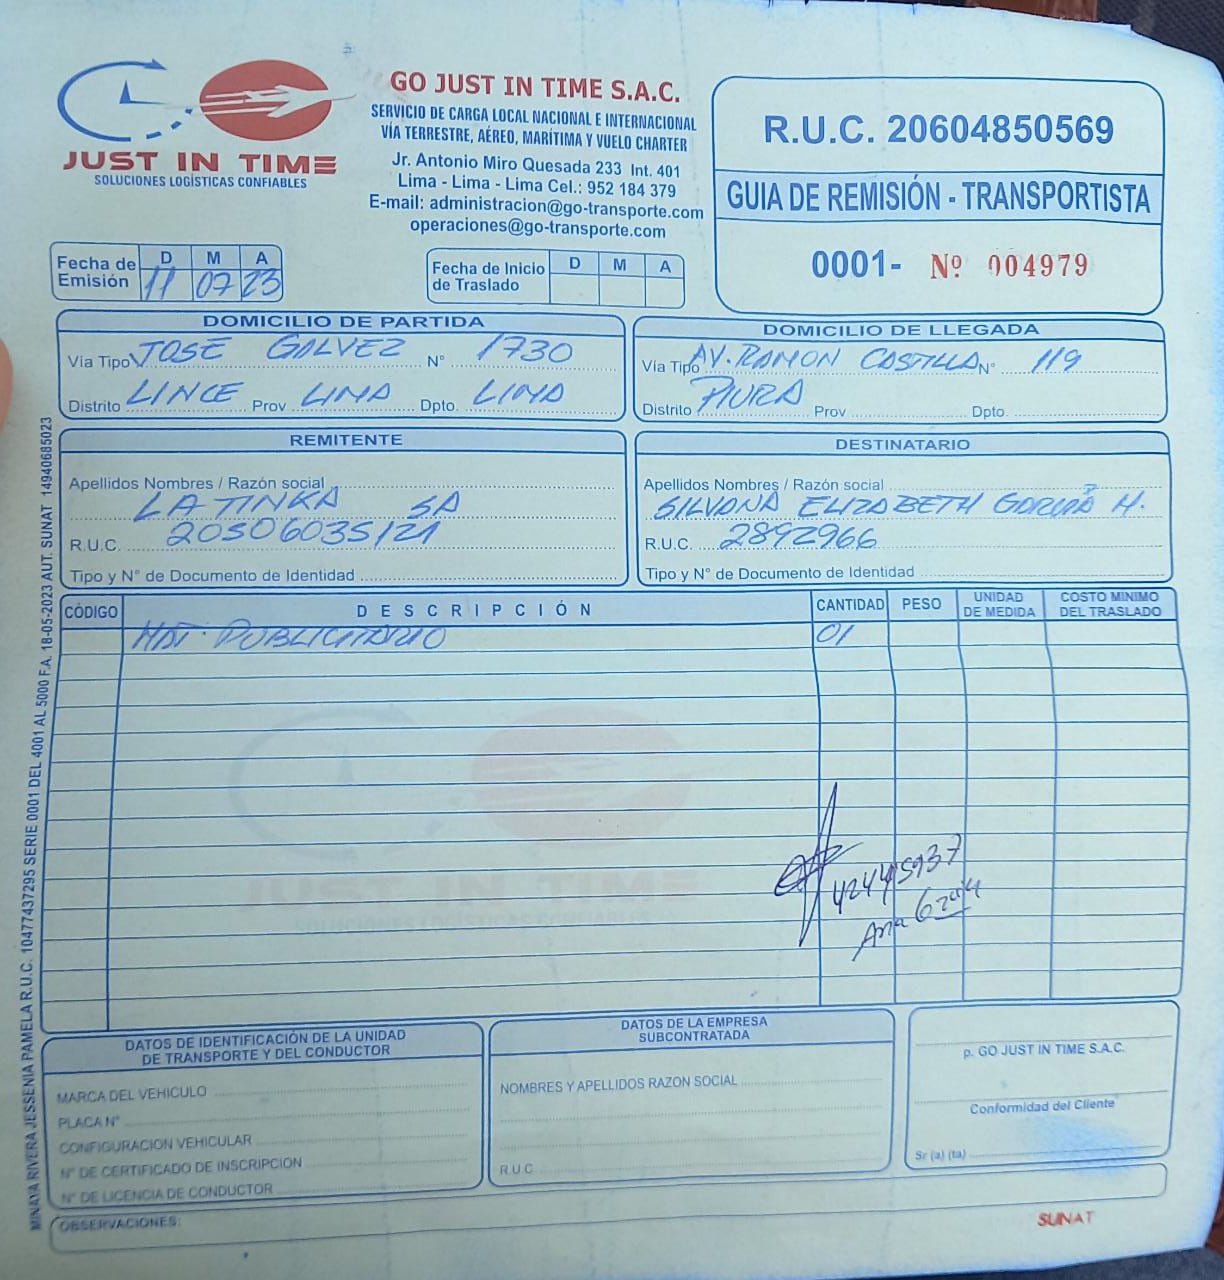 JUST IN TIME
SOLUCIONES LOGÍSTICAS CONFIABLES
GO JUST IN TIME S.A.C.
SERVICIO DE CARGA LOCAL NACIONAL E INTERNACIONAL
VÍA TERRESTRE, AÉREO, MARÍTIMA Y VUELO CHARTER
Jr. Antonio Miro Quesada 233 Int. 401
Lima - Lima - Lima Cel.: 952 184 379
E-mail: administracion@go-transporte.com
operaciones@go-transporte.com
R.U.C. 20604850569
GUIA DE REMISIÓN - TRANSPORTISTA
0001- Nº 004979
Fecha de Emisión D M A
11 07 23
Fecha de Inicio de Traslado D M A
DOMICILIO DE PARTIDA
Vía Tipo JOSE GALVEZ N° 1730
Distrito LINCE Prov LIMA Dpto. LIMA
DOMICILIO DE LLEGADA
Vía Tipo AV. RAMON CASTILLA N° 119
Distrito PIURA Prov Dpto.
REMITENTE
Apellidos Nombres / Razón social
LA TINKA SA
R.U.C. 20506035121
Tipo y N° de Documento de Identidad
DESTINATARIO
Apellidos Nombres / Razón social
SILVANA ELIZABETH GARCIA M.
R.U.C. 2892966
Tipo y N° de Documento de Identidad
CÓDIGO DESCRIPCIÓN CANTIDAD PESO UNIDAD DE MEDIDA COSTO MINIMO DEL TRASLADO
MAT. PUBLICITARIO 01
JUST IN TIME
SOLUCIONES LOGÍSTICAS CONFIABLES
42445937
Ana
DATOS DE IDENTIFICACIÓN DE LA UNIDAD
DE TRANSPORTE Y DEL CONDUCTOR
MARCA DEL VEHICULO
PLACA N°
CONFIGURACION VEHICULAR
N° DE CERTIFICADO DE INSCRIPCION
N° DE LICENCIA DE CONDUCTOR
DATOS DE LA EMPRESA
SUBCONTRATADA
NOMBRES Y APELLIDOS RAZON SOCIAL
R.U.C.
p. GO JUST IN TIME S.A.C.
Conformidad del Cliente
Sr (a) (ta)
OBSERVACIONES:
SUNAT
MINAYA RIVERA JESSENIA PAMELA R.U.C. 10477437295 SERIE 0001 DEL 4001 AL 5000 F.A. 18-05-2023 AUT. SUNAT 14940685023